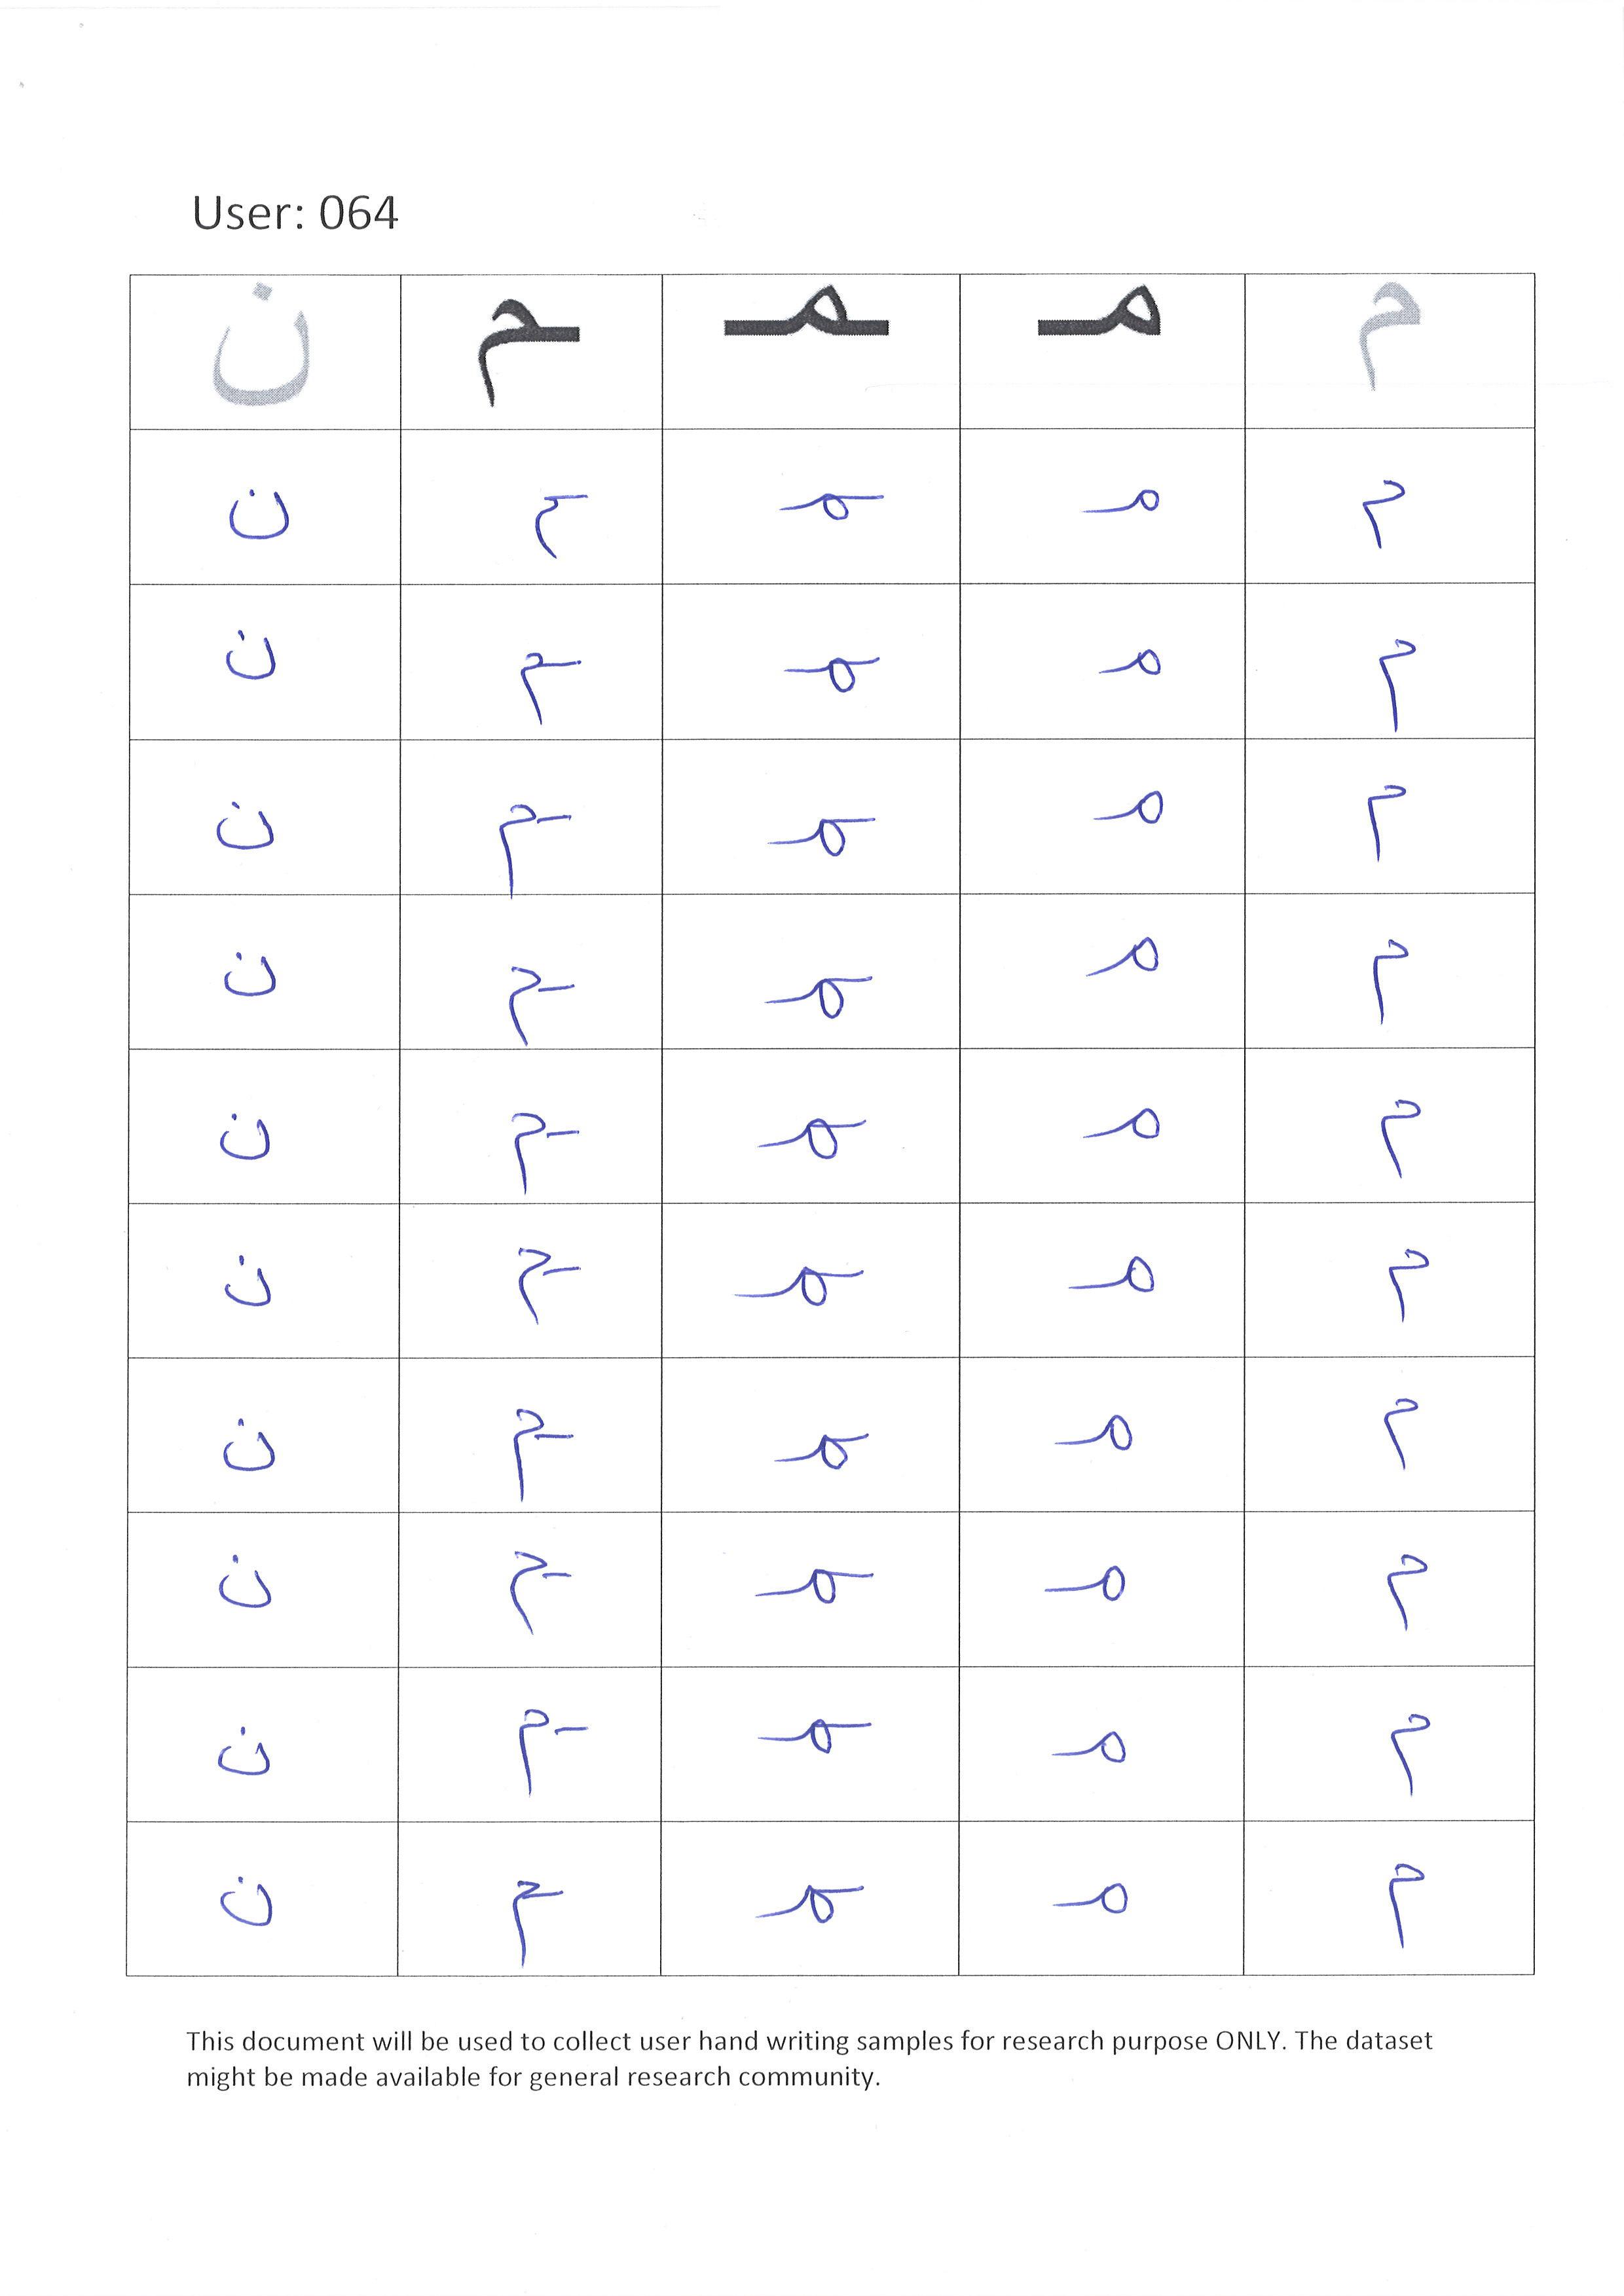 User: 064
م مـ ـمـ ـم ن
م مـ ـمـ ـم ن
م مـ ـمـ ـم ن
م مـ ـمـ ـم ن
م مـ ـمـ ـم ن
م مـ ـمـ ـم ن
م مـ ـمـ ـم ن
م مـ ـمـ ـم ن
م مـ ـمـ ـم ن
م مـ ـمـ ـم ن
م مـ ـمـ ـم ن
This document will be used to collect user hand writing samples for research purpose ONLY. The dataset
might be made available for general research community.